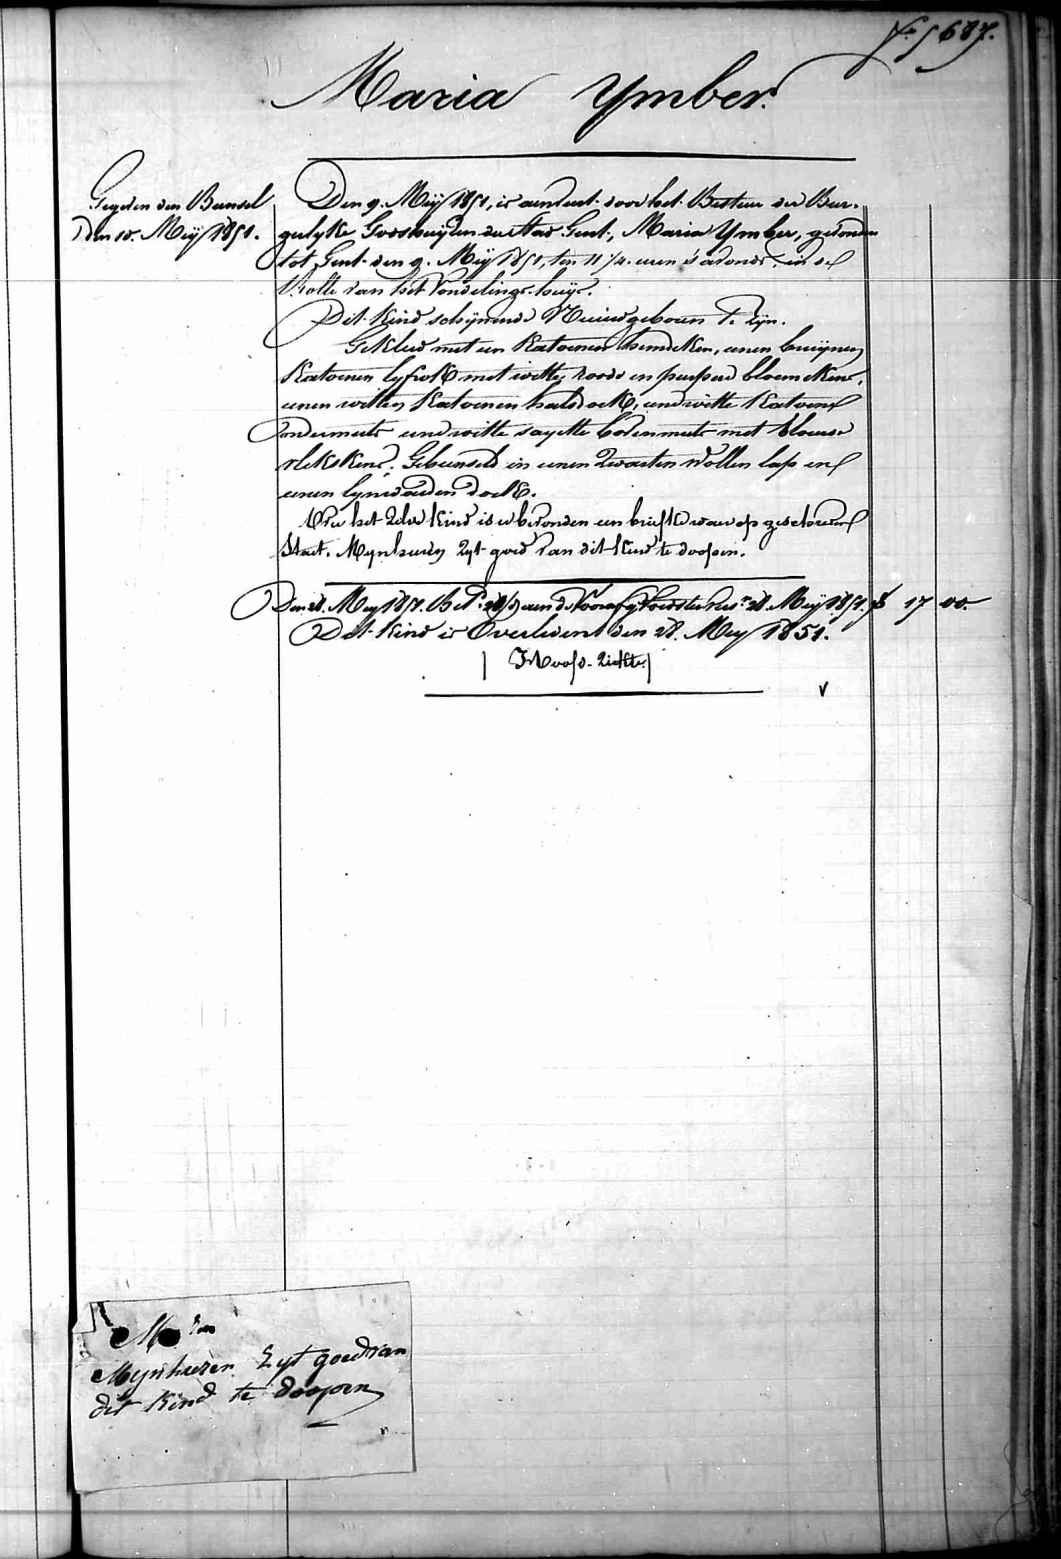 No 5687.
Maria Ymber.
Gegeven den Bunsel
den 10. Meÿ 1851.
Den 9. Meÿ 1851, is aenveert door het Bestuer der Bur-
gerlyke Godshuyzen der Stad Gent, Maria Ymber, gevonden
tot Gent den 9. Meÿ 1851, ten 11 1/4 uren s'avonds, in de
Rolle van het Vondelings-huÿs.
Dit Kind schÿnende Nieuwgeboren te zÿn.
Gekleed met een Katoenen hemdeken, eenen bruÿnen
Katoenen lyfrok met witte, roode en purpere bloemekens,
eenen witten Katoenen halsdoek, eene witte Katoene
ondermuts eene witte sayette bovenmuts met blauwe
vlekskens. Gebunseld in eenen Zwarten Wollen lap en
eenen lynwaeden doek.
Op het Zelve Kind is er bevonden een briefke waer op geschreven
Staet. Mynheeren Zyt goed van dit Kind te doopen.
Den 28. Mey 1851. Bet. aen de Voorzg. Voedster 28. Meÿ 1851. 17 00
Dit Kind is Overleden den 28. Mey 1851.
Hoofd-Ziekte
v
Mynheeren Zyt goed van
dit Kind te doopen